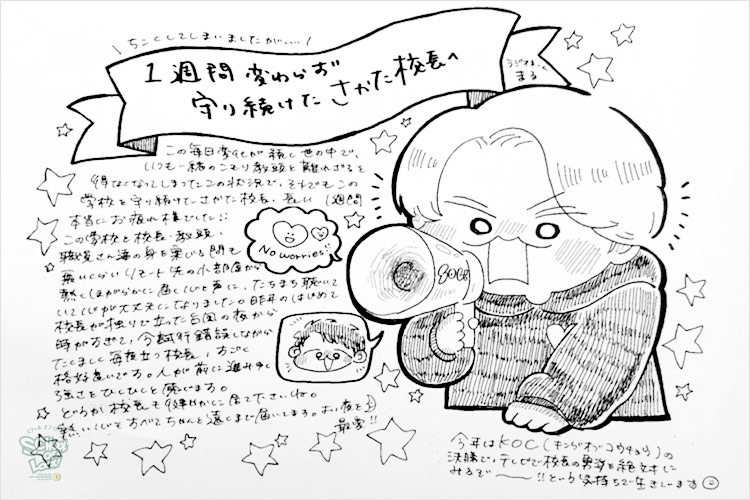 ちこくしてしまいましたが、、、、
1週間変わらず
守り続けたさかた校長へ
ラジオネーム
まる
この毎日変化が続く世の中で、
いつも一緒のこもり教頭と離れざるを
得なくなってしまったこの状況で、それでもこの
学校を守り続けたさかた校長、長い1週間
本当にお疲れ様でした!!
この学校と校長、教頭、
職員さん達の身を案じる間も
無いくらいリモート先の小部屋から
熱くほがらかに届くひと声に、たちまち聴いて
いて心が大丈夫になりました。昨年のはじめて
校長が独りで立った台風の夜から
時がすぎて、今試行錯誤しながら
たくましく毎夜立つ校長、すごく
格好良いです。人が前に進み歩く
強さをひしひしと感じます。
どうか校長も健やかに居て下さいね。
熱い心もすべてちゃんと遠くまで届いてます。お
最愛!!
No worries!!
SOCL
今年はKOC(キングオブコウチョウ)の
決勝で、テレビで校長の勇姿を絶対に
みるぞ〜!!という気持ちで生きています